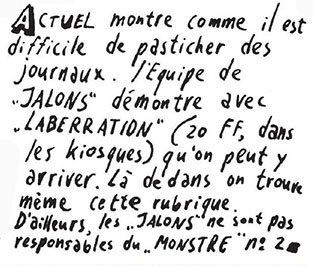 ACTUEL montre comme il est
difficile de pasticher des
journaux. l'Equipe de
„JALONS" démontre avec
„LABERRATION" (20 FF, dans
les kiosques) qu'on peut y
arriver. Là dedans on trouve
même cette rubrique.
D'ailleurs, les „JALONS" ne sont pas
responsables du „MONSTRE" nº 2